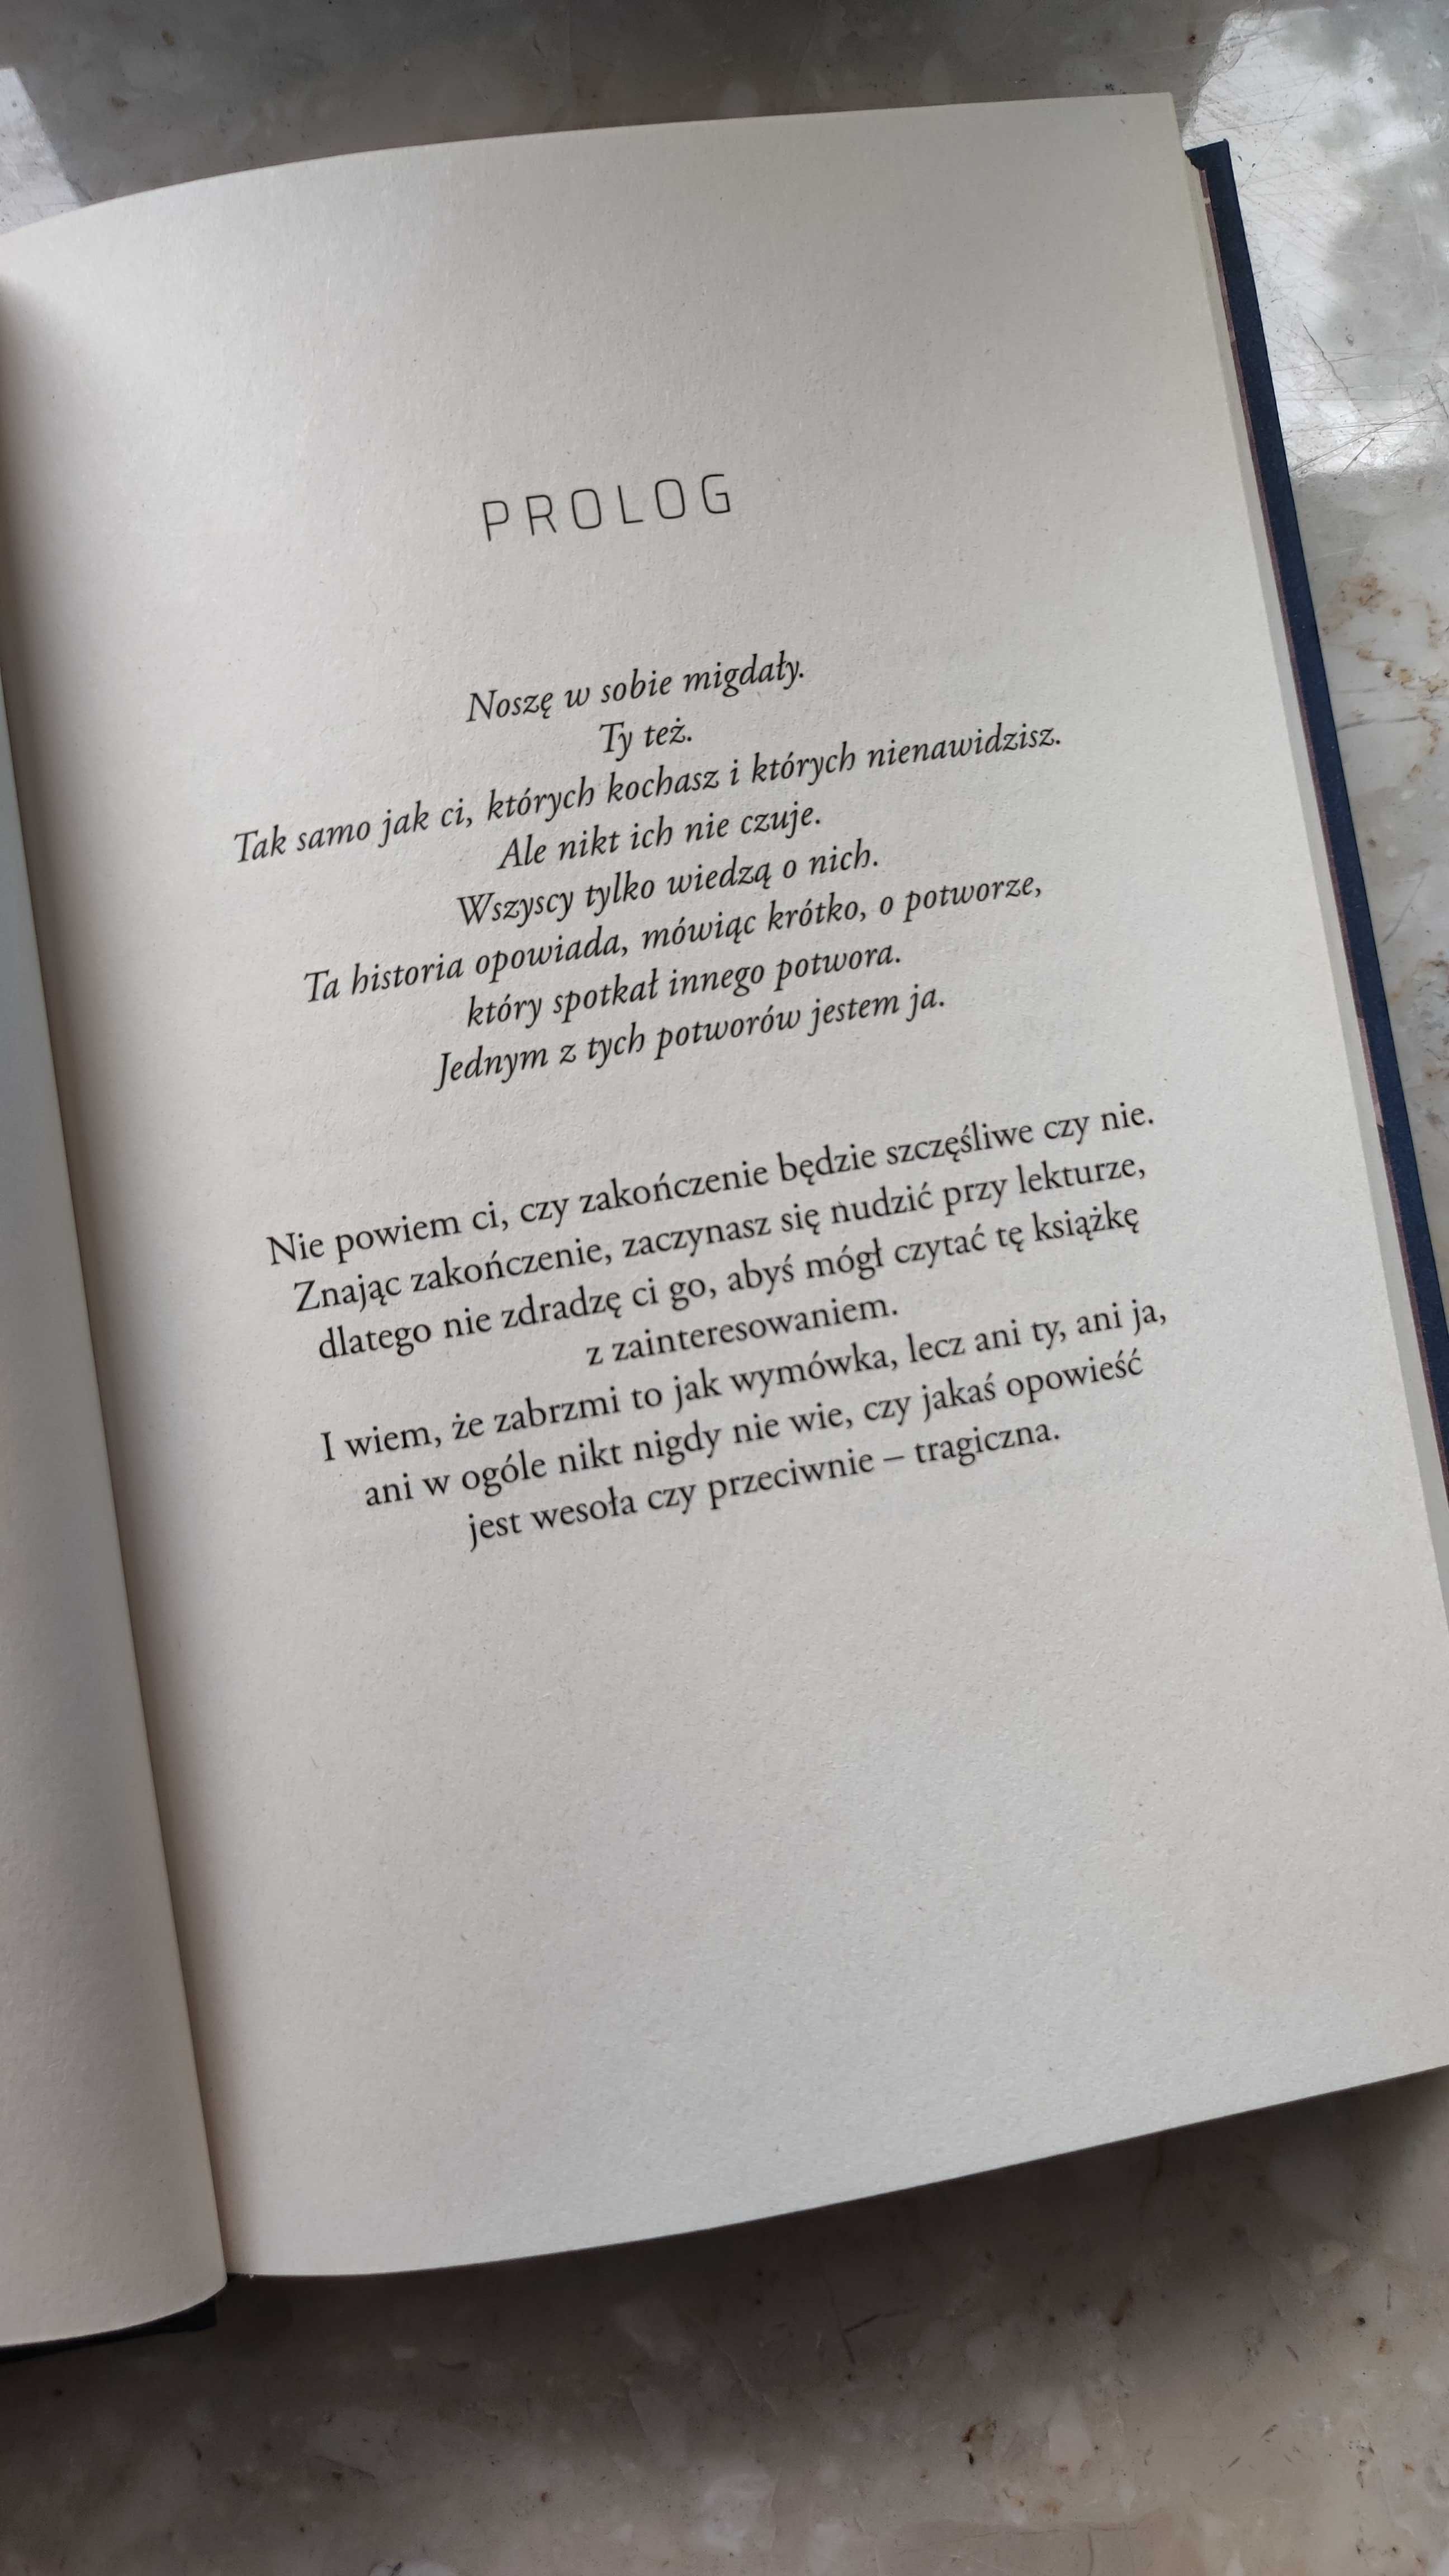 PROLOG
Noszę w sobie migdały.
Ty też.
Tak samo jak ci, których kochasz i których nienawidzisz.
Ale nikt ich nie czuje.
Wszyscy tylko wiedzą o nich.
Ta historia opowiada, mówiąc krótko, o potworze,
który spotkał innego potwora.
Jednym z tych potworów jestem ja.
Nie powiem ci, czy zakończenie będzie szczęśliwe czy nie.
Znając zakończenie, zaczynasz się nudzić przy lekturze,
dlatego nie zdradzę ci go, abyś mógł czytać tę książkę
z zainteresowaniem.
I wiem, że zabrzmi to jak wymówka, lecz ani ty, ani ja,
ani w ogóle nikt nigdy nie wie, czy jakaś opowieść
jest wesoła czy przeciwnie – tragiczna.